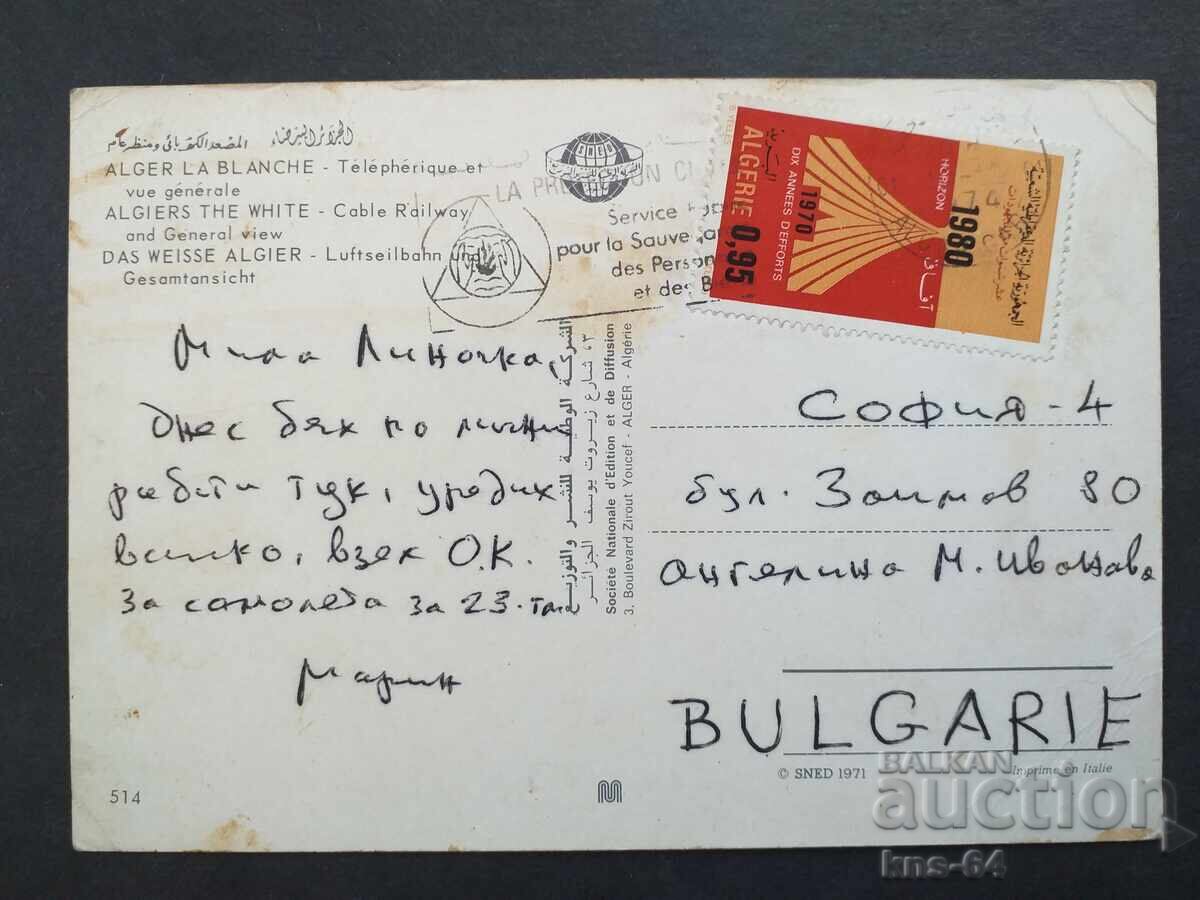 الجزائر البيضاء المصعد الكهربائي ومنظر عام
ALGER LA BLANCHE - Téléphérique et
vue générale
ALGIERS THE WHITE - Cable Railway
and General view
DAS WEISSE ALGIER - Luftseilbahn und
Gesamtansicht
SNED
LA PRE
Service
pour la Sauve
des Person
et des B
ALGERIE 0,95
DIX ANNEES D'EFFORTS
1970
HORIZON
1980
آفاق
Мила Линочка,
днес бях по лични
работи тук, уредих
всичко, взех О.К.
за самолета за 23.
Марин
الشركة الوطنية للنشر والتوزيع
٣ شارع زيروت يوسف الجزائر
Société Nationale d'Edition et de Diffusion
3. Boulevard Zirout Youcef - ALGER - Algérie
СОФИЯ-4
бул. Заимов 80
Ангелина М. Иванова
BULGARIE
© SNED 1971
Imprimé en Italie
514
M
BALKAN
auction
kns-64